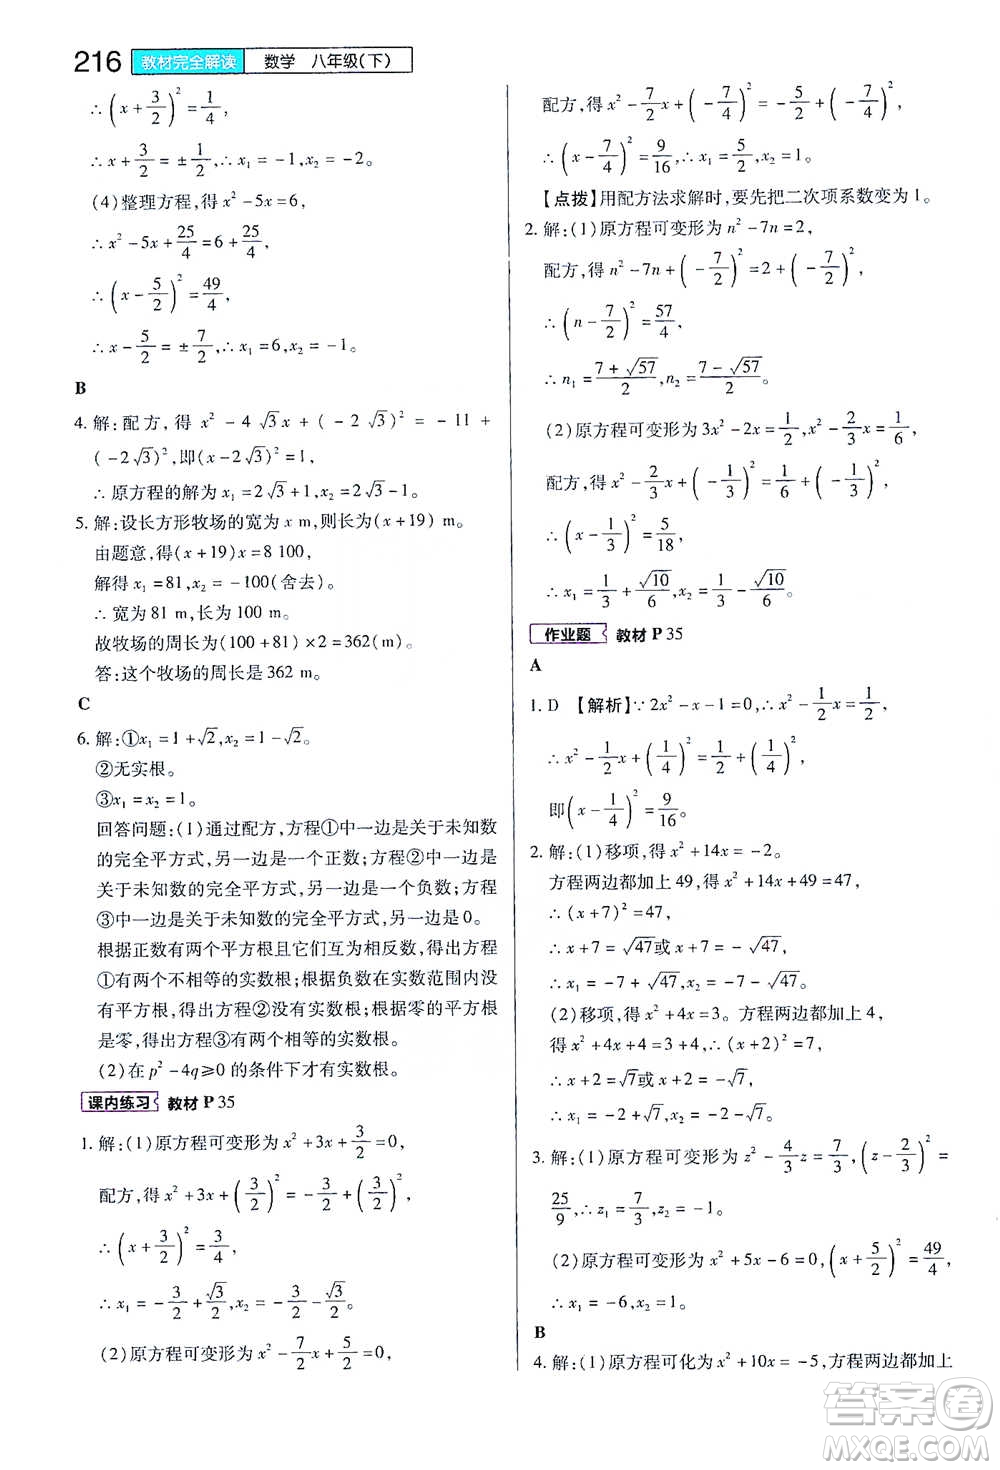 216 教材完全解读 数学 八年级(下)
∴(x+3/2)²=1/4,
∴x+3/2=±1/2,∴x₁=-1,x₂=-2。
(4)整理方程,得x²-5x=6,
∴x²-5x+25/4=6+25/4,
∴(x-5/2)²=49/4,
∴x-5/2=±7/2,∴x₁=6,x₂=-1。
B
4. 解:配方,得x²-4√3x+(-2√3)²=-11+
(-2√3)²,即(x-2√3)²=1,
∴原方程的解为x₁=2√3+1,x₂=2√3-1。
5. 解:设长方形牧场的宽为x m,则长为(x+19) m。
由题意,得(x+19)x=8 100,
解得x₁=81,x₂=-100(舍去)。
∴宽为81 m,长为100 m。
故牧场的周长为(100+81)×2=362(m)。
答:这个牧场的周长是362 m。
C
6. 解:①x₁=1+√2,x₂=1-√2。
②无实根。
③x₁=x₂=1。
回答问题:(1)通过配方,方程①中一边是关于未知数
的完全平方式,另一边是一个正数;方程②中一边是
关于未知数的完全平方式,另一边是一个负数;方程
③中一边是关于未知数的完全平方式,另一边是0。
根据正数有两个平方根且它们互为相反数,得出方程
①有两个不相等的实数根;根据负数在实数范围内没
有平方根,得出方程②没有实数根;根据零的平方根
是零,得出方程③有两个相等的实数根。
(2)在p²-4q≥0的条件下才有实数根。
课内练习 教材 P 35
1. 解:(1)原方程可变形为x²+3x+3/2=0,
配方,得x²+3x+(3/2)²=(3/2)²-3/2,
∴(x+3/2)²=3/4,
∴x₁=-3/2+√3/2,x₂=-3/2-√3/2。
(2)原方程可变形为x²-7/2x+5/2=0,
配方,得x²-7/2x+(-7/4)²=-5/2+(-7/4)²,
∴(x-7/4)²=9/16,∴x₁=5/2,x₂=1。
【点拨】用配方法求解时,要先把二次项系数变为1。
2. 解:(1)原方程可变形为n²-7n=2,
配方,得n²-7n+(-7/2)²=2+(-7/2)²,
∴(n-7/2)²=57/4,
∴n₁=(7+√57)/2,n₂=(7-√57)/2。
(2)原方程可变形为3x²-2x=1/2,x²-2/3x=1/6,
配方,得x²-2/3x+(-1/3)²=1/6+(-1/3)²,
∴(x-1/3)²=5/18,
∴x₁=1/3+√10/6,x₂=1/3-√10/6。
作业题 教材 P 35
A
1. D 【解析】∵2x²-x-1=0,∴x²-1/2x=1/2,
∴x²-1/2x+(1/4)²=1/2+(1/4)²,
即(x-1/4)²=9/16。
2. 解:(1)移项,得x²+14x=-2。
方程两边都加上49,得x²+14x+49=47,
∴(x+7)²=47,
∴x+7=√47或x+7=-√47,
∴x₁=-7+√47,x₂=-7-√47。
(2)移项,得x²+4x=3。方程两边都加上4,
得x²+4x+4=3+4,∴(x+2)²=7,
∴x+2=√7或x+2=-√7,
∴x₁=-2+√7,x₂=-2-√7。
3. 解:(1)原方程可变形为z²-4/3z=7/3,(z-2/3)²=
25/9,∴z₁=7/3,z₂=-1。
(2)原方程可变形为x²+5x-6=0,(x+5/2)²=49/4,
∴x₁=-6,x₂=1。
B
4. 解:(1)原方程可化为x²+10x=-5,方程两边都加上
答案圈
MXQE.COM